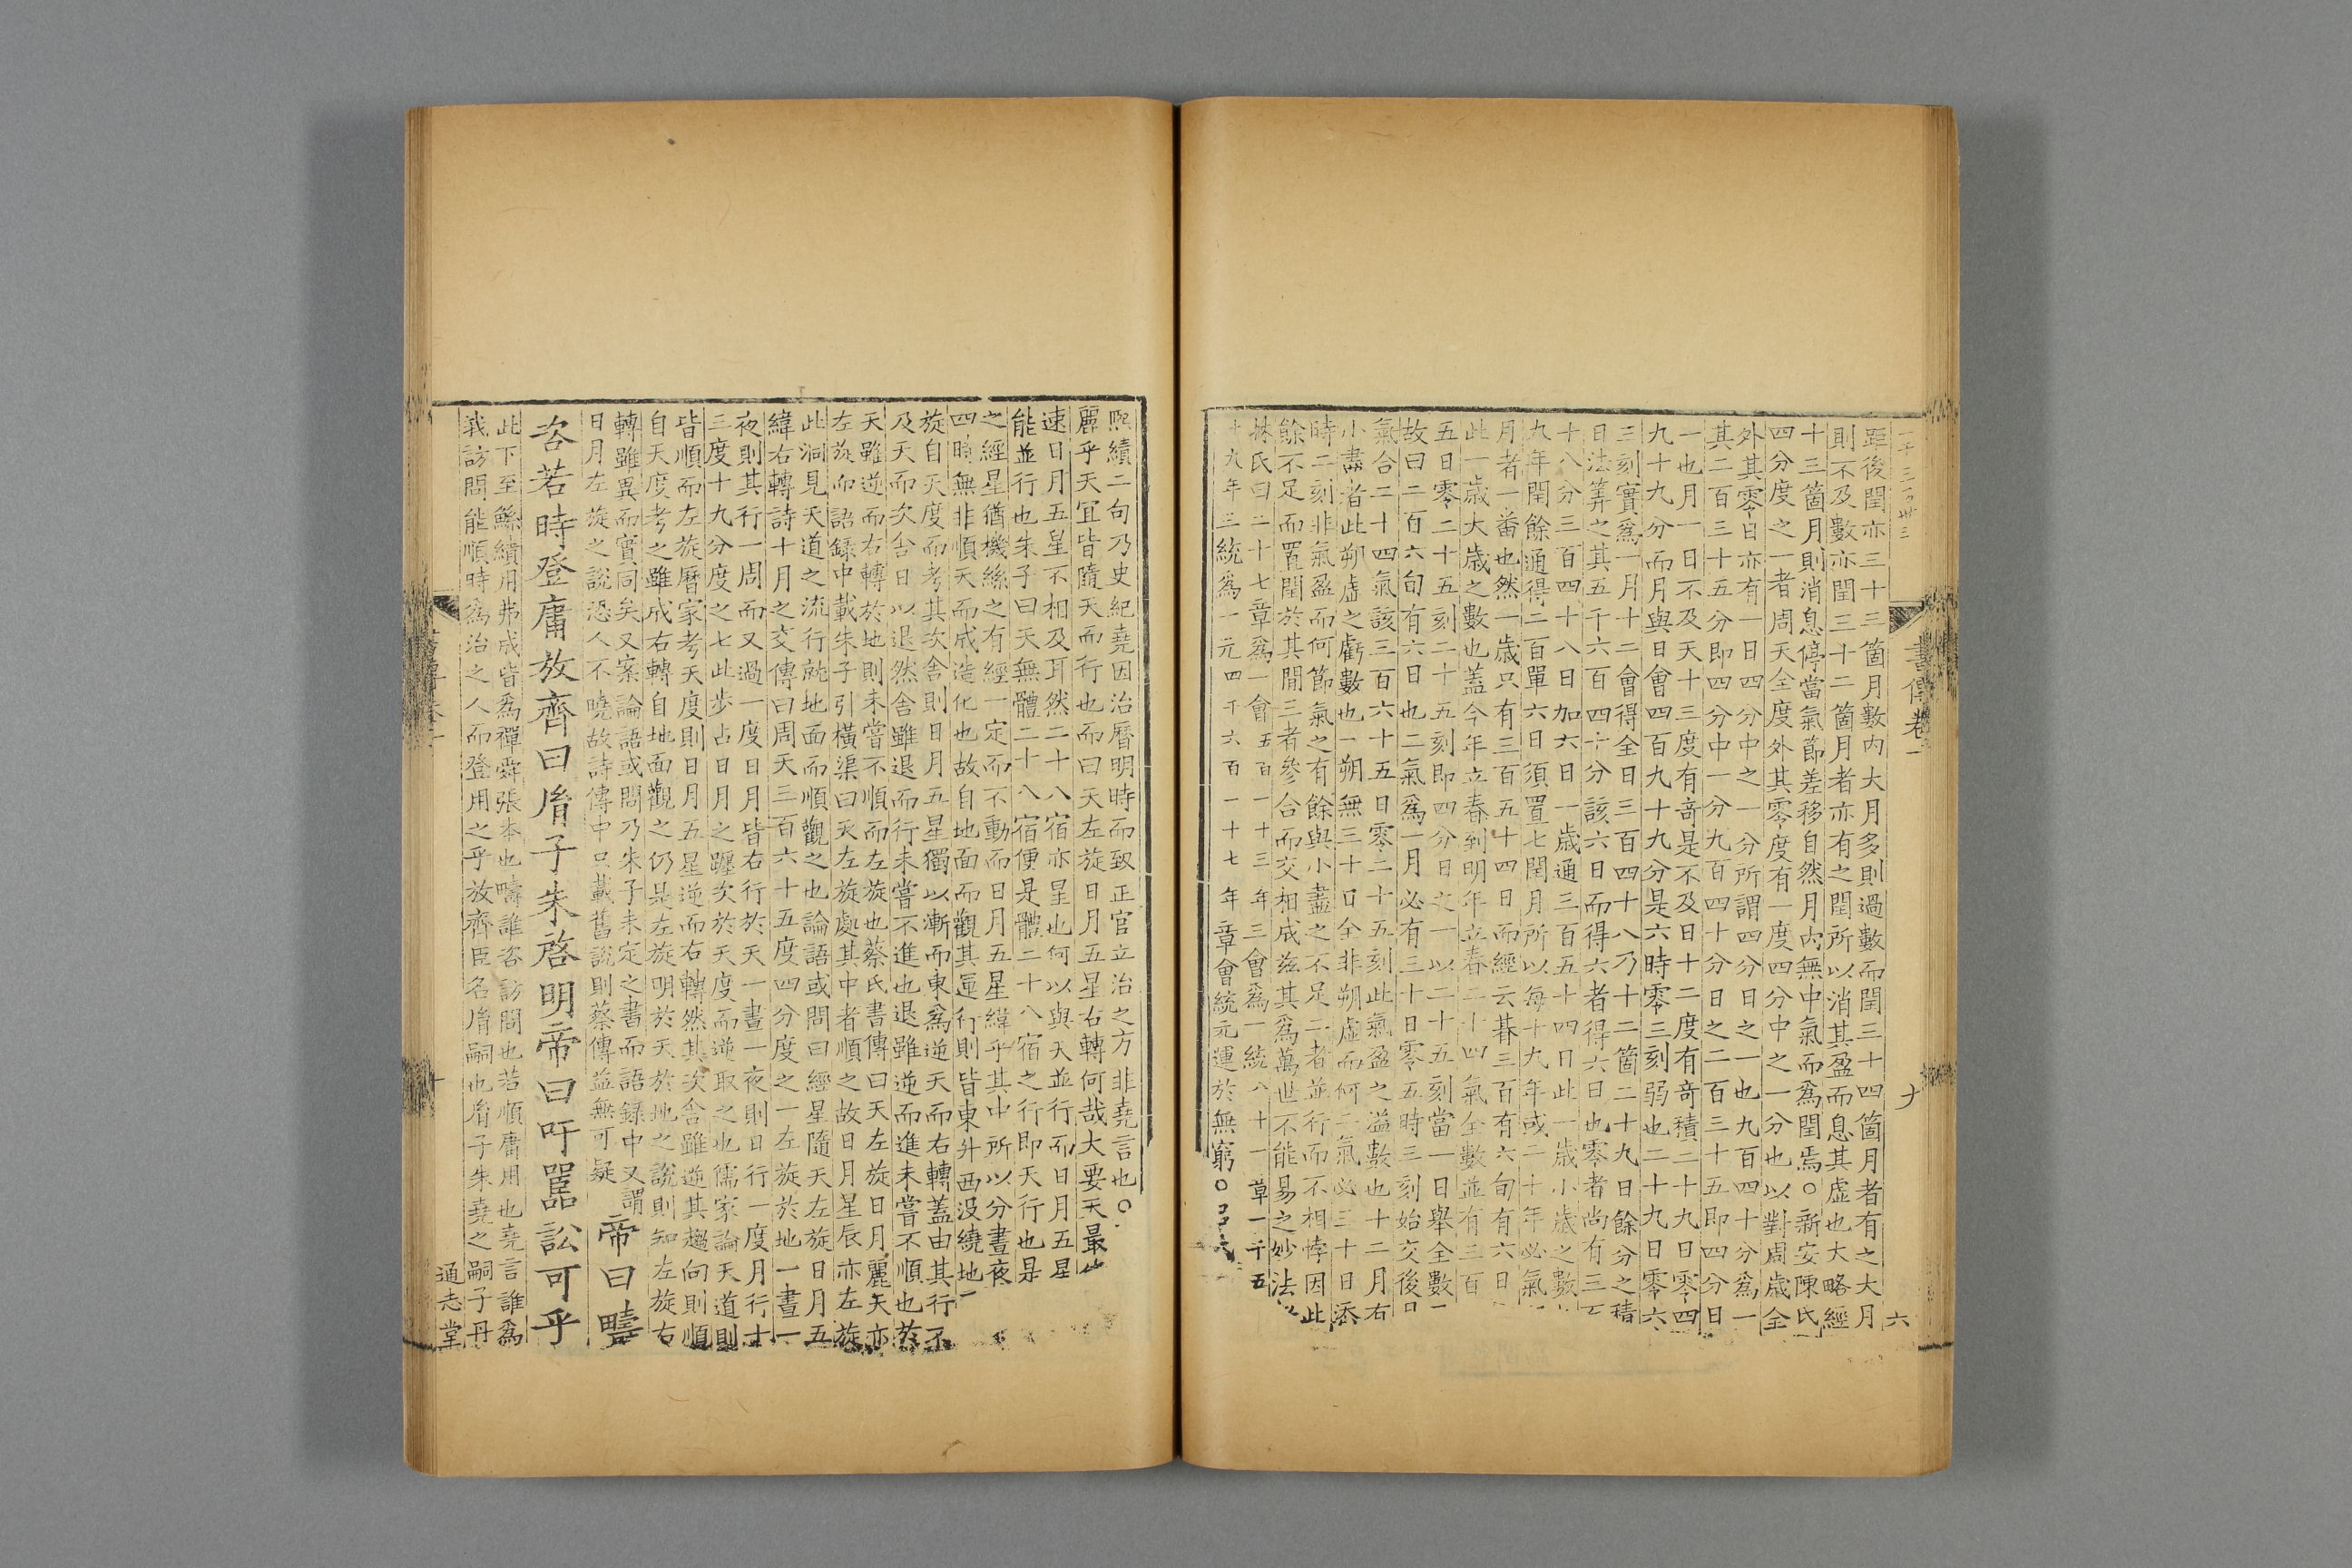 書傳卷一
六
距後閏亦三十三箇月數内大月多則過數而閏三十四箇月者有之大月
則不及數亦閏三十二箇月者亦有之閏所以消其盈而息其虚也大略經
十三箇月則消息停當氣節差移自然月内無中氣而爲閏焉○新安陳氏
四分度之一者周天全度外其零度有一度四分中之一分也以對周歲全
外其零日亦有一日四分中之一分所謂四分日之一也九百四十分爲一
其二百三十五分即四分中一分九百四十分日之二百三十五即四分日
一也月一日不及天十三度有竒是不及日十二度有竒積二十九日零四
九十九分而月與日會四百九十九分是六時零三刻弱也二十九日零六
三刻實爲一月十二會得全日三百四十八乃十二箇二十九日餘分之積
日法筭之其五千六百四十分該六日而得六者得六日也零者尚有三百
十八分三百四十八日加六日一歲通三百五十四日此一歲小歲之數
九年閏餘通得二百單六日須置七閏月所以每十九年或二十年必氣
月者一番也然一歲只有三百五十四日而經云朞三百有六旬有六日
此一歲大歲之數也蓋今年立春到明年立春二十四氣全數並有三百
五日零二十五刻二十五刻即四分日之一以二十五刻當一日舉全數
故曰三百六旬有六日也二氣爲一月必有三十日零五時二刻始交後月
氣合二十四氣該三百六十五日零二十五刻此氣盈之溢數也十二月有
小盡者此朔虚之虧數也一朔無三十日全非朔虚而何二氣必三十日零
時二刻非氣盈而何節氣之有餘與小盡之不足二者並行而不相悖因此
餘不足而置閏於其間三者參合而交相成兹其爲萬世不能易之妙法
林氏曰二十七章爲一會五百一十三年三會爲一統八十一章一千五
十九年三統爲一元四千六百一十七年章會統元運於無窮○呂氏
熙績二句乃史紀堯因治曆明時而致正官立治之方非堯言也○
麗乎天宜皆隨天而行也而曰天左旋日月五星右轉何哉大要天最
速日月五星不相及耳然二十八宿亦星也何以與天並行而日月五星
能並行也朱子曰天無體二十八宿便是體二十八宿之行即天行也是
之經星猶機絲之有經一定而不動而日月五星緯乎其中所以分晝夜
四時無非順天而成造化也故自地面而觀其運行則皆東升西没繞地
旋自天度而考其次舍則日月五星獨以漸而東爲逆天而右轉蓋由其行不
及天而次舍日以退然舍雖退而行未嘗不進也退雖逆而進未嘗不順也於
天雖逆而右轉於地則未嘗不順而左旋也蔡氏書傳曰天左旋日月麗天亦
左旋而語録中載朱子引横渠曰天左旋處其中者順之故日月星辰亦左旋
此洞見天道之流行就地面而順觀之也論語或問曰經星隨天左旋日月五
緯右轉詩十月之交傳曰周天三百六十五度四分度之一左旋於地一晝一
夜則其行一周而又過一度日月皆右行於天一晝一夜則日行一度月行十
三度十九分度之七此步占日月之躔次於天度而逆取之也儒家論天道則
皆順而左旋曆家考天度則日月五星逆而右轉然其次舍雖逆其趨向則順
自天度考之雖成右轉自地面觀之仍是左旋明於天於地之說則知左旋右
轉雖異而實同矣又案論語或問乃朱子未定之書而語録中又謂
日月左旋之說恐人不曉故詩傳中只載舊說則蔡傳益無可疑
帝曰疇
咨若時登庸放齊曰胤子朱啓明帝曰吁嚚訟可乎
此下至鯀績用弗成皆爲禪舜張本也疇誰咨訪問也若順庸用也堯言誰爲
我訪問能順時爲治之人而登用之乎放齊臣名胤嗣也胤子朱堯之嗣子丹
通志堂